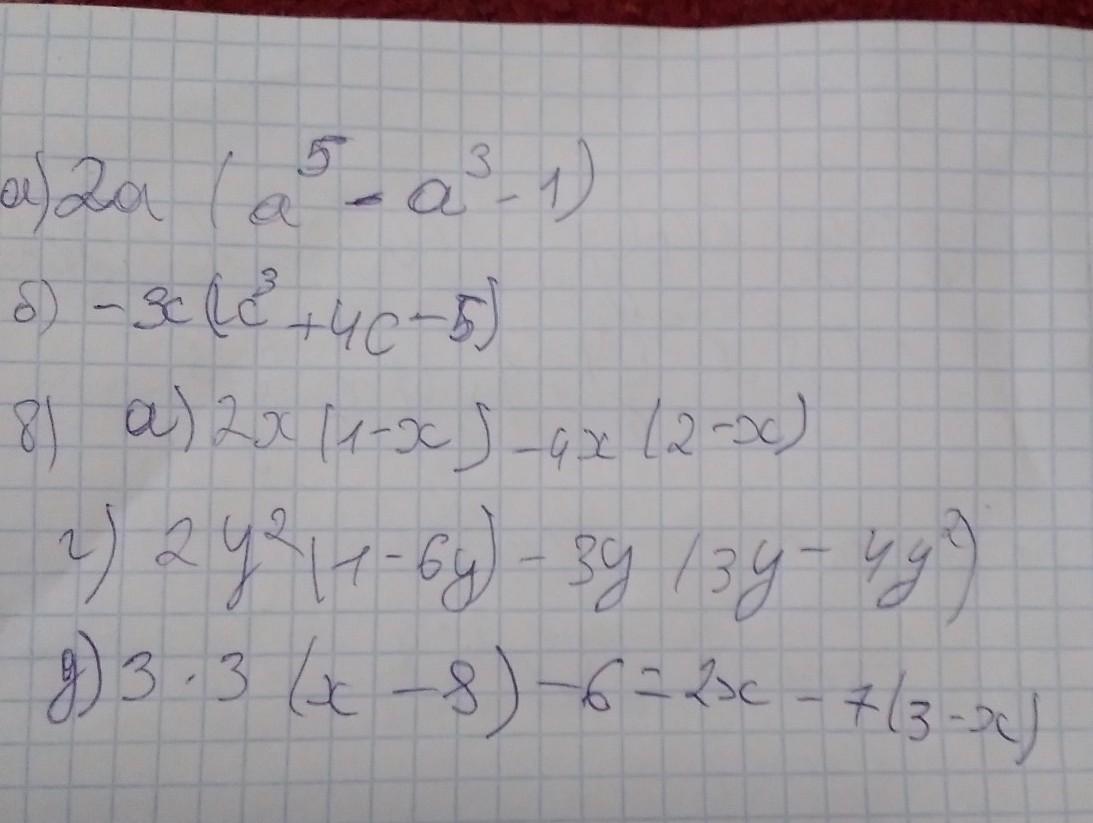 а) 2a (a⁵ - a³ - 1)
б) -3c (c³ + 4c - 5)
8) а) 2x (1 - x) - 4x (2 - x)
г) 2y² (1 - 6y) - 3y (3y - 4y²)
д) 3 · 3 (x - 8) - 6 = 2x - 7 (3 - x)